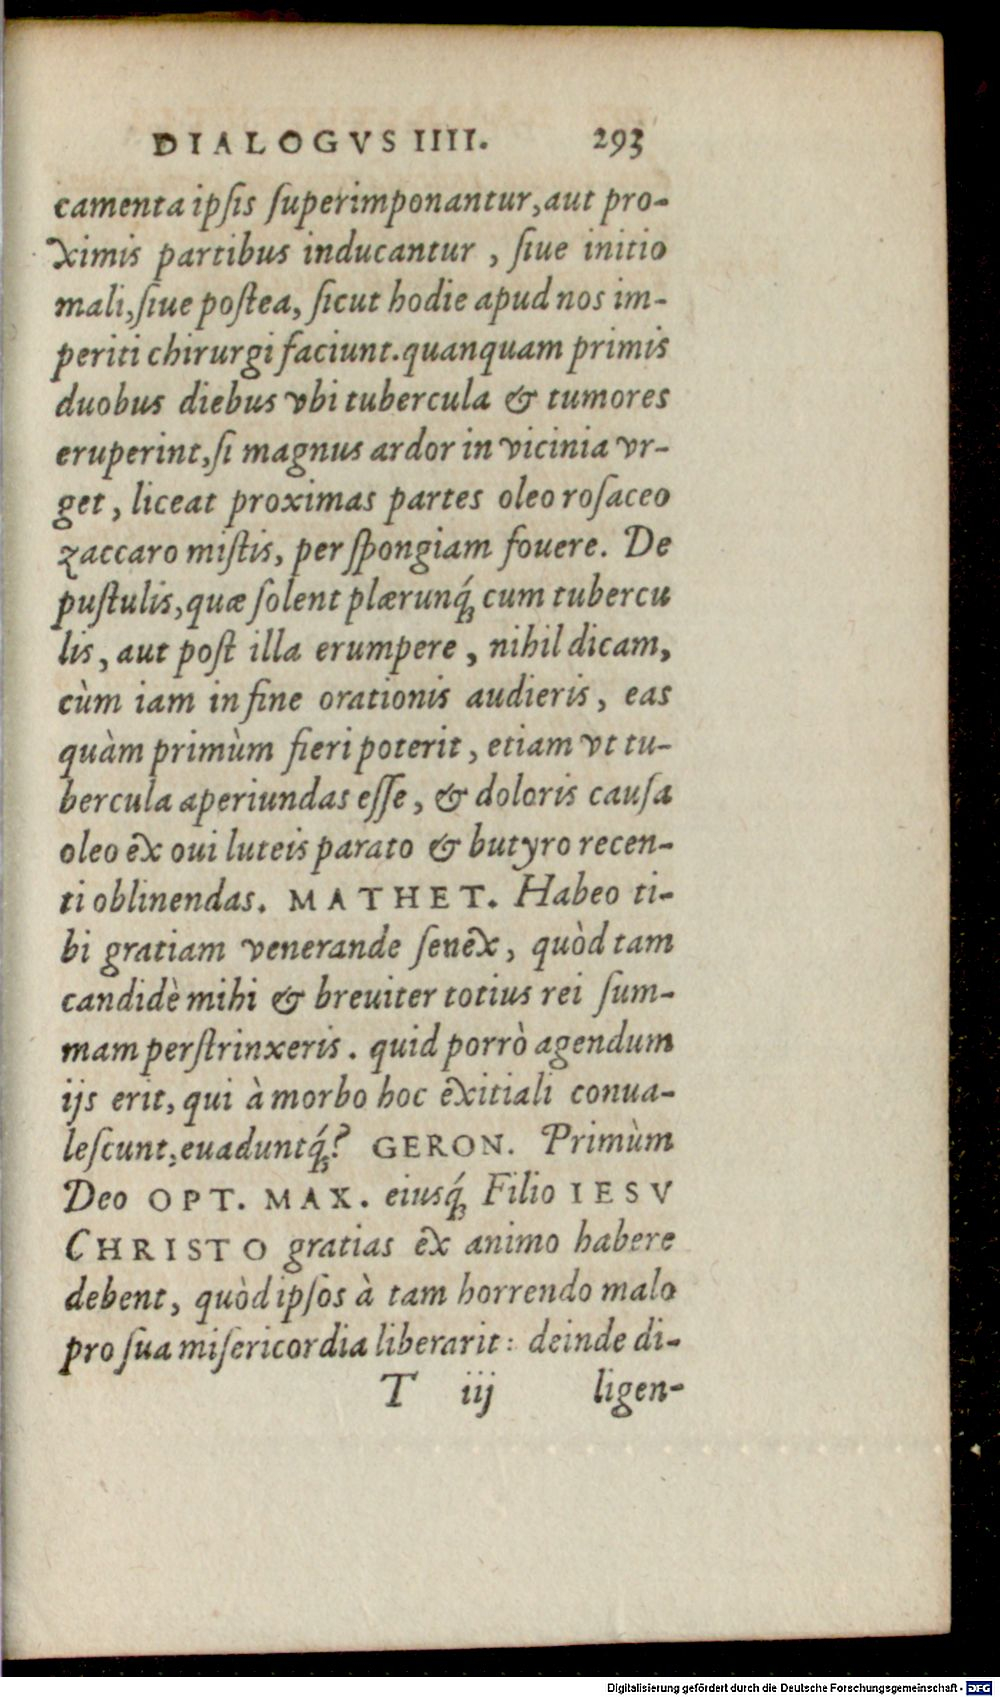 DIALOGVS IIII. 293
camenta ipſis ſuperimponantur, aut pro-
ximis partibus inducantur , ſiue initio
mali, ſiue poſtea, ſicut hodie apud nos im-
periti chirurgi faciunt. quanquam primis
duobus diebus vbi tubercula & tumores
eruperint, ſi magnus ardor in vicinia vr-
get , liceat proximas partes oleo roſaceo
zaccaro miſtis, per ſpongiam fouere. De
puſtulis, quæ ſolent plærunq́; cum tubercu
lis , aut poſt illa erumpere , nihil dicam,
cùm iam in fine orationis audieris , eas
quàm primùm fieri poterit , etiam vt tu-
bercula aperiundas eſſe , & doloris cauſa
oleo ex oui luteis parato & butyro recen-
ti oblinendas. MATHET. Habeo ti-
bi gratiam venerande ſenex , quòd tam
candidè mihi & breuiter totius rei ſum-
mam perſtrinxeris . quid porrò agendum
ijs erit, qui à morbo hoc exitiali conua-
leſcunt, euaduntq́;? GERON. Primùm
Deo OPT. MAX. eiusq́; Filio IESV
CHRISTO gratias ex animo habere
debent, quòd ipſos à tam horrendo malo
pro ſua miſericordia liberarit : deinde di-
T iij ligen-
Digitalisierung gefördert durch die Deutsche Forschungsgemeinschaft - DFG